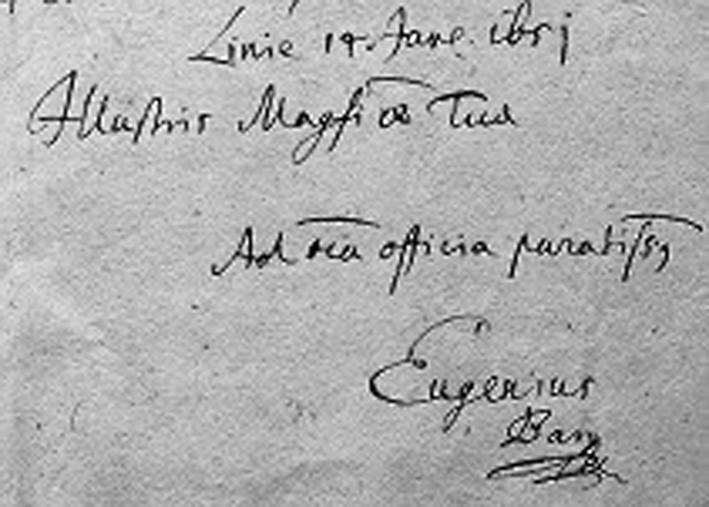 Linie 14. Janr. 1651
Illustris Magficae Tuae
Ad oia officia paratissq
Eugenius